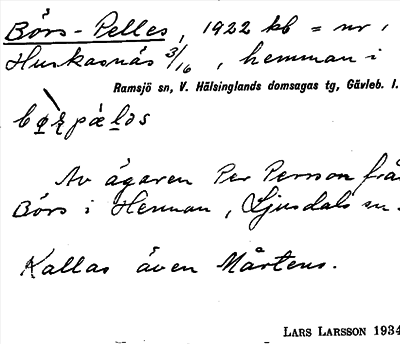 Börs-Pelles, 1922 kb = nr 1
Huskasnäs 3/16, hemman i
Ramsjö sn, V. Hälsinglands domsagas tg, Gävleb. l.
Av ägaren Per Person frå
Börs i Hennan, Ljusdals sn.
Kallas även Mårtens.
LARS LARSSON 1934